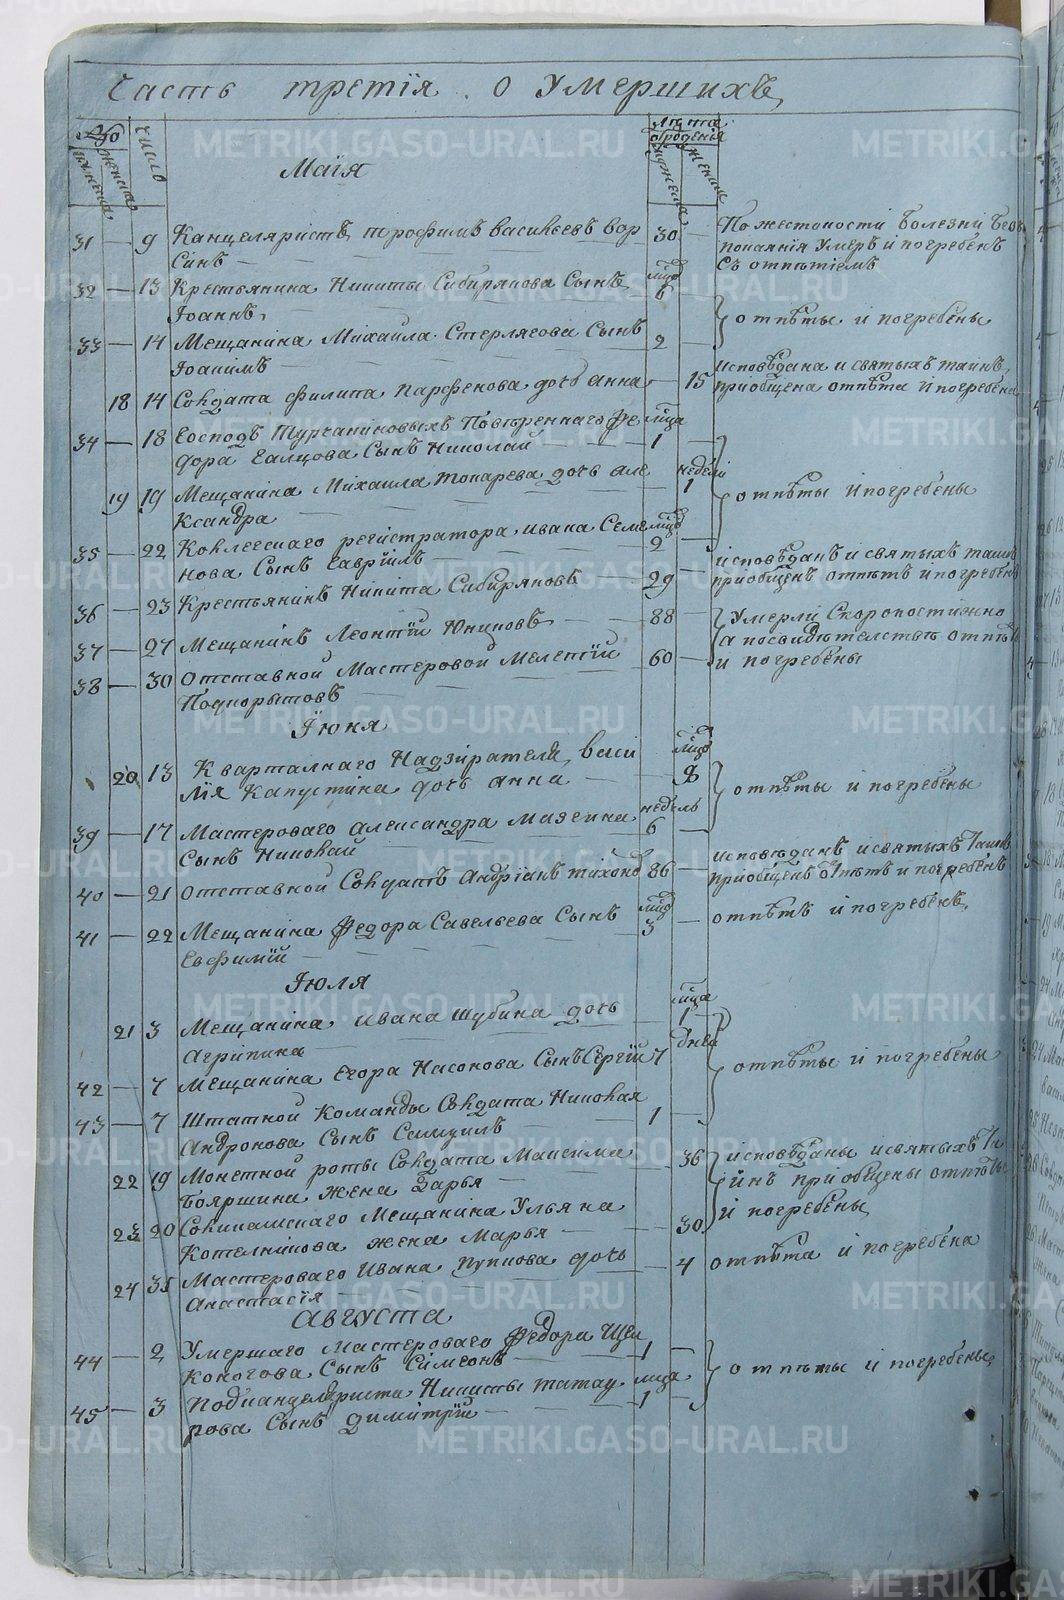 Часть третїя о умершихъ
No
мужеска
женска
число
лѣта
оброденїя
мужеска
женска
Маїя
31 — 9 Канцеляристъ трофимъ васильевъ вор
синъ — 30 По жестокости болезни безъ
покаянїя умеръ и погребенъ
съ отпѣтїемъ
32 — 13 Крестьянина Никиты Сибирякова Сынъ мцъ
Іоаннъ, 6
33 — 14 Мещанина Михаила Стерлягова Сынъ 2 — отпѣты и погребены
Іоакимъ —
18 14 Солдата филипа парфенова дочь анна — 15 исповѣдана и святыхъ таинъ
приобщена отпѣта и погребена
34 — 18 Господъ Турчаниновыхъ Повѣреннаго Фе мца
дора Галцова Сынъ Николай — 1 —
19 19 Мещанина Михаила токарева дочь але недели
ксандра 1 отпѣты и погребены
35 — 22 Коллегскаго регистратора ивана Семе мцъ
нова Сынъ Гаврїилъ — 2 —
36 — 23 Крестьянинъ Никита Сибиряковъ — 29 — исповѣданъ и святыхъ таинъ
приобщенъ отпѣтъ и погребенъ
37 — 27 Мещанинъ Леонтїй Юниновъ — 88 — умерли Скоропостижно
а посвидѣтелствѣ отпѣты
и погребены
38 — 30 Отставной Мастеровой Мелетїй 60 —
Подкорытовъ
Їюня
20 13 Кварталнаго Надзирателя васи мцъ
лїя Капустина дочь анна — 8 отпѣты и погребены
39 — 17 Мастероваго александра Мазгина недель
Сынъ Николай 6 —
40 — 21 отставной Солдатъ Андрїанъ тихоно 86 — исповѣданъ и святыхъ таинъ
приобщенъ отпѣтъ и погребенъ
41 — 22 Мещанина Федора Савельева Сынъ мцъ
Евфимїй — 3 — отпѣтъ и погребенъ,
Їюля
21 3 Мещанина ивана шубина дочь мца
агрипина 1
42 — 7 Мещанина Егора Насонова Сынъ Сергїй 7 дней отпѣты и погребены
43 — 7 Штатной Команды Солдата Николая 1 —
Андронова Сынъ Самуилъ
22 19 Монетной роты Солдата Максима 36 исповѣданы и святыхъ та
Бояршина жена дарья — йнъ приобщены отпѣты
и погребены
23 20 Соликамскаго Мещанина Ульяна 30
Котелникова жена Марья —
24 35 Мастероваго Ивана пупкова дочь — 4 отпѣта и погребена
анастасїя —
августа
44 — 2 Умершаго Мастероваго Федора Щел 1 —
коногова Сынъ Сїмеонъ — отпѣты и погребены,
45 — 3 Подканцеляриста Никиты татау мца
рова Сынъ димитрїй — 1 —
METRIKI.GASO-URAL.RU